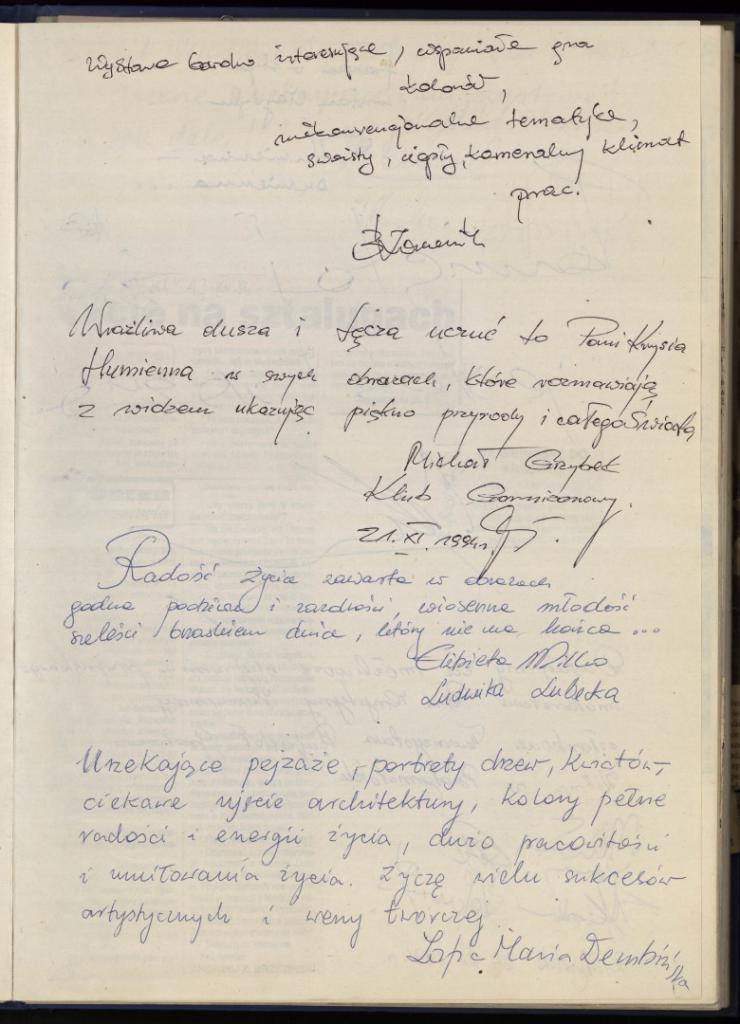 Wystawa bardzo interesujące, wspaniała gra
kolorów,
niekonwencjonalna tematyka,
swoisty, ciepły, kameralny klimat
prac.
Wrażliwa dusza i tęcza uczuć to Pani Krysia
Humienna w swych obrazach, które rozmawiają
z widzem ukazując piękno przyrody i całego Świata
Michał Grzybek
Klub Garnizonowy.
21.XI.1994r.
Radość życia zawarta w obrazach
godna podziwu i zazdrości, wiosenna młodość
szeleści brzaskiem dnia, który nie ma końca...
Elżbieta
Ludwika Lubecka
Urzekające pejzaże, portrety drzew, kwiatów,
ciekawe ujęcie architektury, kolory pełne
radości i energii życia, dużo pracowitości
i umiłowania życia. Życzę wielu sukcesów
artystycznych i weny twórczej
Maria Dembińska